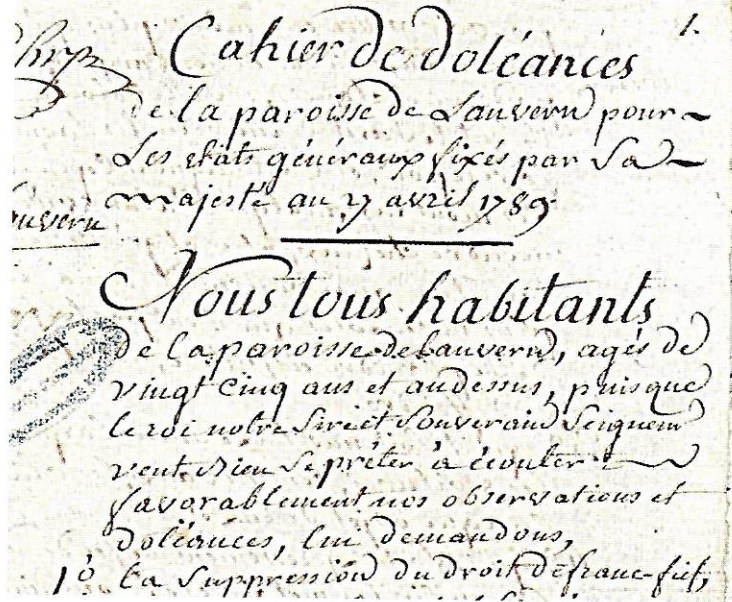 1.
Cahier de doléances
de la paroisse de Lauvern pour
Les etats généraux fixés par Sa
majesté au 27 avril 1789
Nous tous habitants
de la paroisse de Lauvern, agés de
vingt cinq ans et audessus, puisque
le roi notre Sire et Souverain Seigneur
veut bien se prêter à écouter
favorablement nos observations et
doléances, lui demandons,
1º la Suppression du droit de franc-fief,